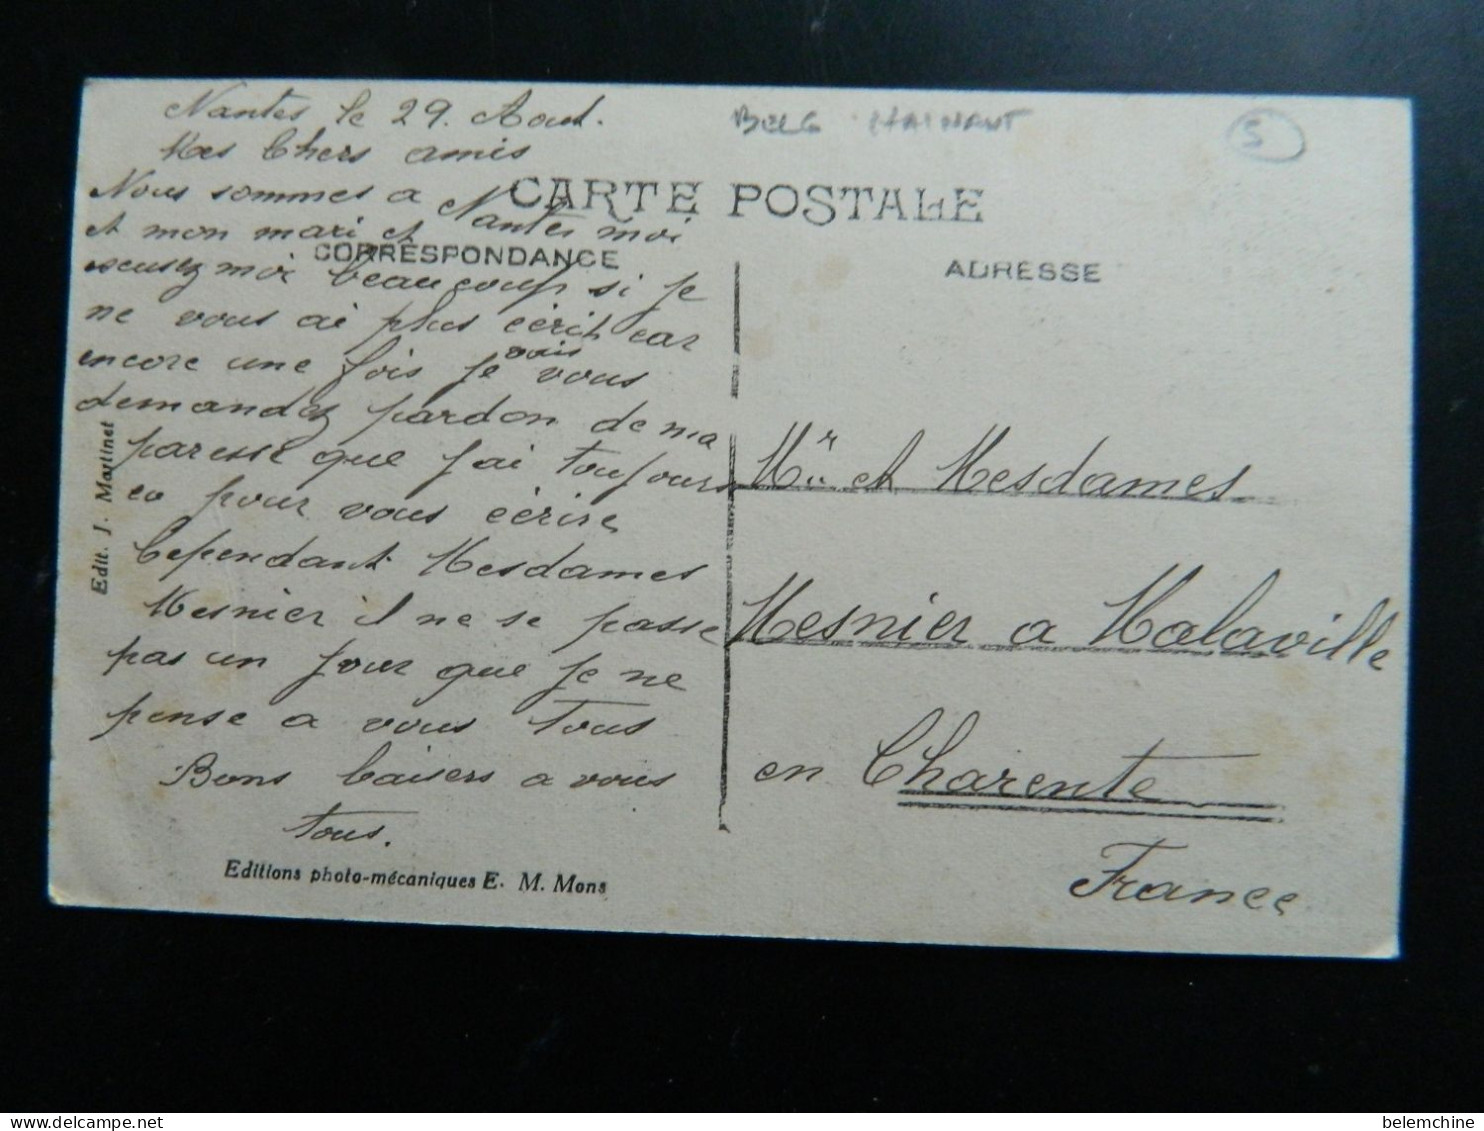 Nantes le 29. Aout.
Mes Chers amis
Nous sommes a Nantes moi
et mon mari et
escusez moi beaucoup si je
ne vous ai plus écrit car
encore une fois je vais vous
demandez pardon de ma
paresse que j'ai toujours
eo pour vous écrire
Cependant Mesdames
Mesnier il ne se passe
pas un jour que je ne
pense a vous tous
Bons baisers a vous
tous.
Edit. J. Martinet
Editions photo-mécaniques E. M. Mons
BELG HAINAUT
5
CARTE POSTALE
CORRESPONDANCE
ADRESSE
Mr et Mesdames
Mesnier a Malaville
en Charente
France
belemchine